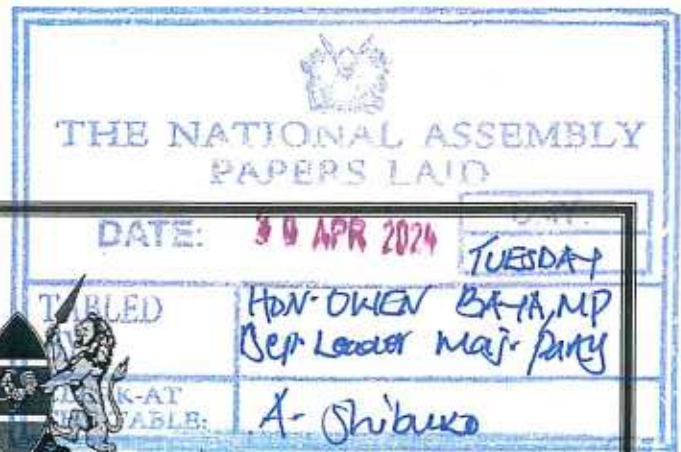 THE NATIONAL ASSEMBLY
PAPERS LAID
DATE: 30 APR 2024 DAY:
TUESDAY
TABLED HON. OWEN BAYA, MP
BY: Dep. Leader Maj. Party
CLERK-AT
THE-TABLE: A. Shibuko